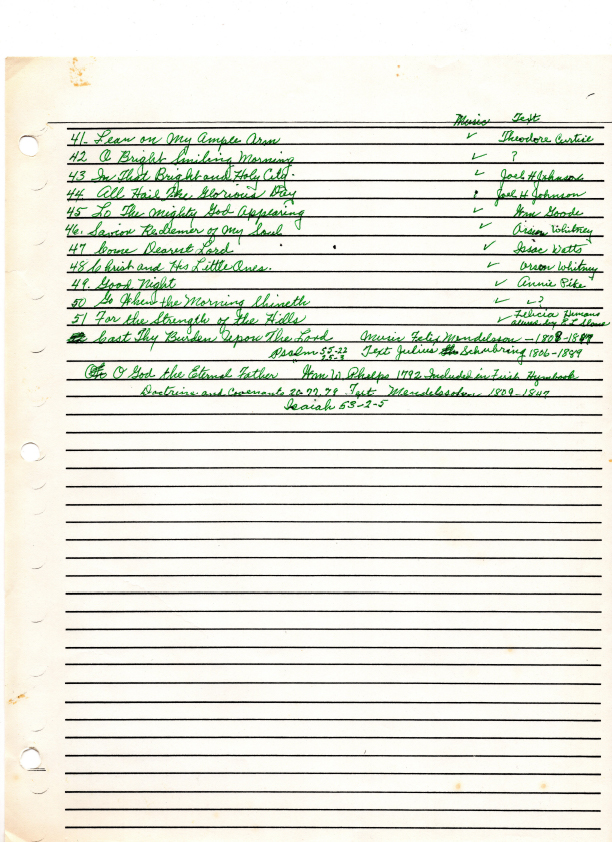 Music Text
41- Lean on My Ample Arm ✓ Theodore Curtise
42 O Bright Smiling Morning ✓ ?
43 In That Bright and Holy City. ✓ Joel H Johnson
44. All Hail The Glorious Day ? Joel H Johnson
45 Lo The Mighty God Appearing ✓ Wm Goode
46. Savior Redeemer of My Soul Orson Whitney
47 Come Dearest Lord ✓ Isaac Watts
48 Christ and His Little Ones. ✓ Orson Whitney
49. Good Night ✓ Annie Pike
50 Go When the Morning Shineth ✓ ✓?
51 For the Strength of The Hills ✓ Felicia Hemans
Cast Thy Burden Upon The Lord Music Felix Mendelsson - 1809-1849
Psalm 55-22 Text Julius Schubring 1806-1899
25-3
O God the Eternal Father Wm W Phelps 1792 Included in First Hymbook
Doctrine and Covenants 20-77,79 Text Mendelssohn 1809-1847
Isaiah 53-2-5